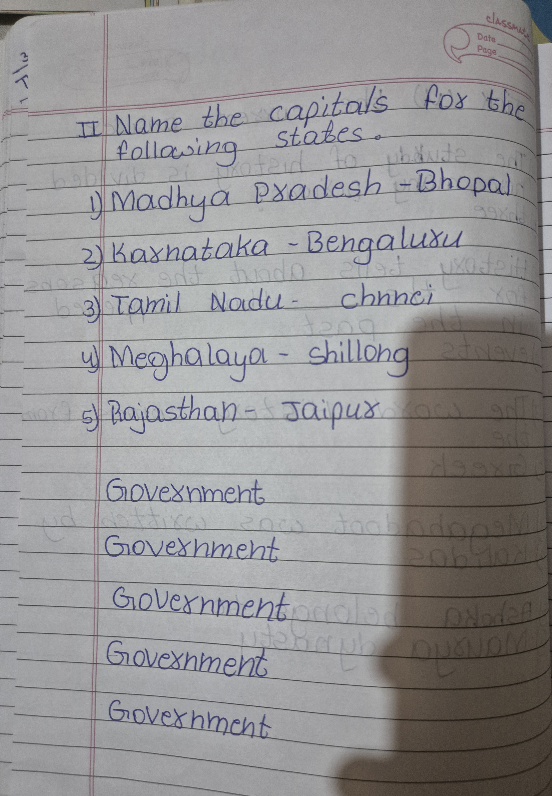 classmate
Date
Page
II Name the capitals for the
following states.
1) Madhya Pradesh - Bhopal
2) Karnataka - Bengaluru
3) Tamil Nadu - chnnci
4) Meghalaya - shillong
5) Rajasthan - Jaipur
Government
Government
Government
Government
Government